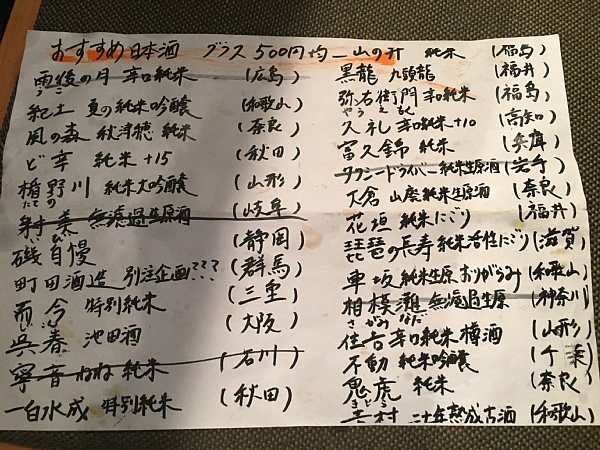 おすすめ日本酒 グラス500円均一
雨後の月 辛口純米 (広島)
うご
紀土 夏の純米吟醸 (和歌山)
風の森 秋津穂 純米 (奈良)
ど辛 純米 +15 (秋田)
楯野川 純米大吟醸 (山形)
たての
射美 無濾過生原酒 (岐阜)
いび
磯自慢 (静岡)
町田酒造 別注企画??? (群馬)
而今 特別純米 (三重)
じこん
呉春 池田酒 (大阪)
寧音 ねね 純米 (石川)
一白水成 特別純米 (秋田)
山の井 純米 (福島)
黒龍 九頭龍 (福井)
弥右衛門 辛口純米 (福島)
やうえもん
久礼 辛口純米+10 (高知)
富久錦 純米 (兵庫)
タクシードライバー 純米生原酒 (岩手)
大倉 山廃純米生原酒 (奈良)
花垣 純米にごり (福井)
琵琶の長寿 純米活性にごり (滋賀)
車坂 純米生原おりがらみ (和歌山)
相模灘 無濾過生原 (神奈川)
さがみなだ
住吉 辛口純米樽酒 (山形)
不動 純米吟醸 (千葉)
鬼虎 純米 (奈良)
きどら
二十年熟成古酒 (和歌山)